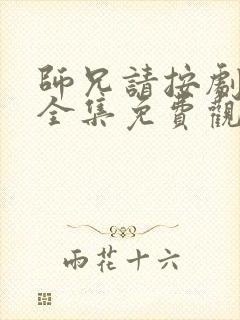 師兄請按劇
全集免費觀
雨花十六